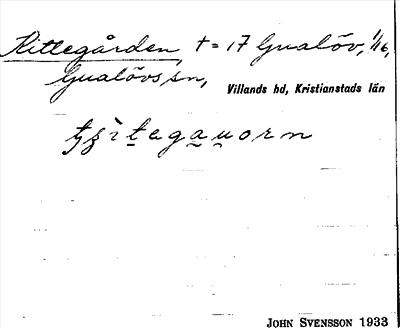 Kittegården, t = 17 Gualöv, 1/16,
Gualövs sn,
Villands hd, Kristianstads län
JOHN SVENSSON 1933